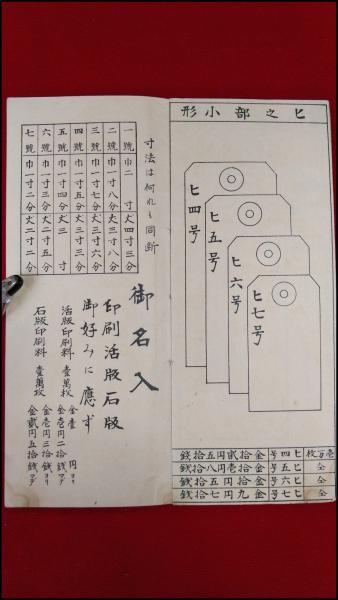 ヒ之部小形
ヒ四号
ヒ五号
ヒ六号
ヒ七号
ヒ四号 金拾貳円五拾銭
仝 ヒ五号 金拾壱円八拾銭
仝 ヒ六号 金拾円五拾銭
仝 ヒ七号 金九円七拾銭
寸法は何れも同断
一號 巾二寸 丈四寸三分
二號 巾一寸八分 丈三寸八分
三號 巾一寸七分 丈三寸六分
四號 巾一寸五分 丈三寸三分
五號 巾一寸四分 丈三寸
六號 巾一寸三分 丈二寸五分
七號 巾一寸二分 丈二寸二分
御名入
印刷活版石版
御好みに應ず
活版印刷料 壹萬枚 金壹円ヨリ
金壱円二拾銭マデ
石版印刷料 壹萬枚 金壱円三拾銭ヨリ
金貳円五拾銭マデ